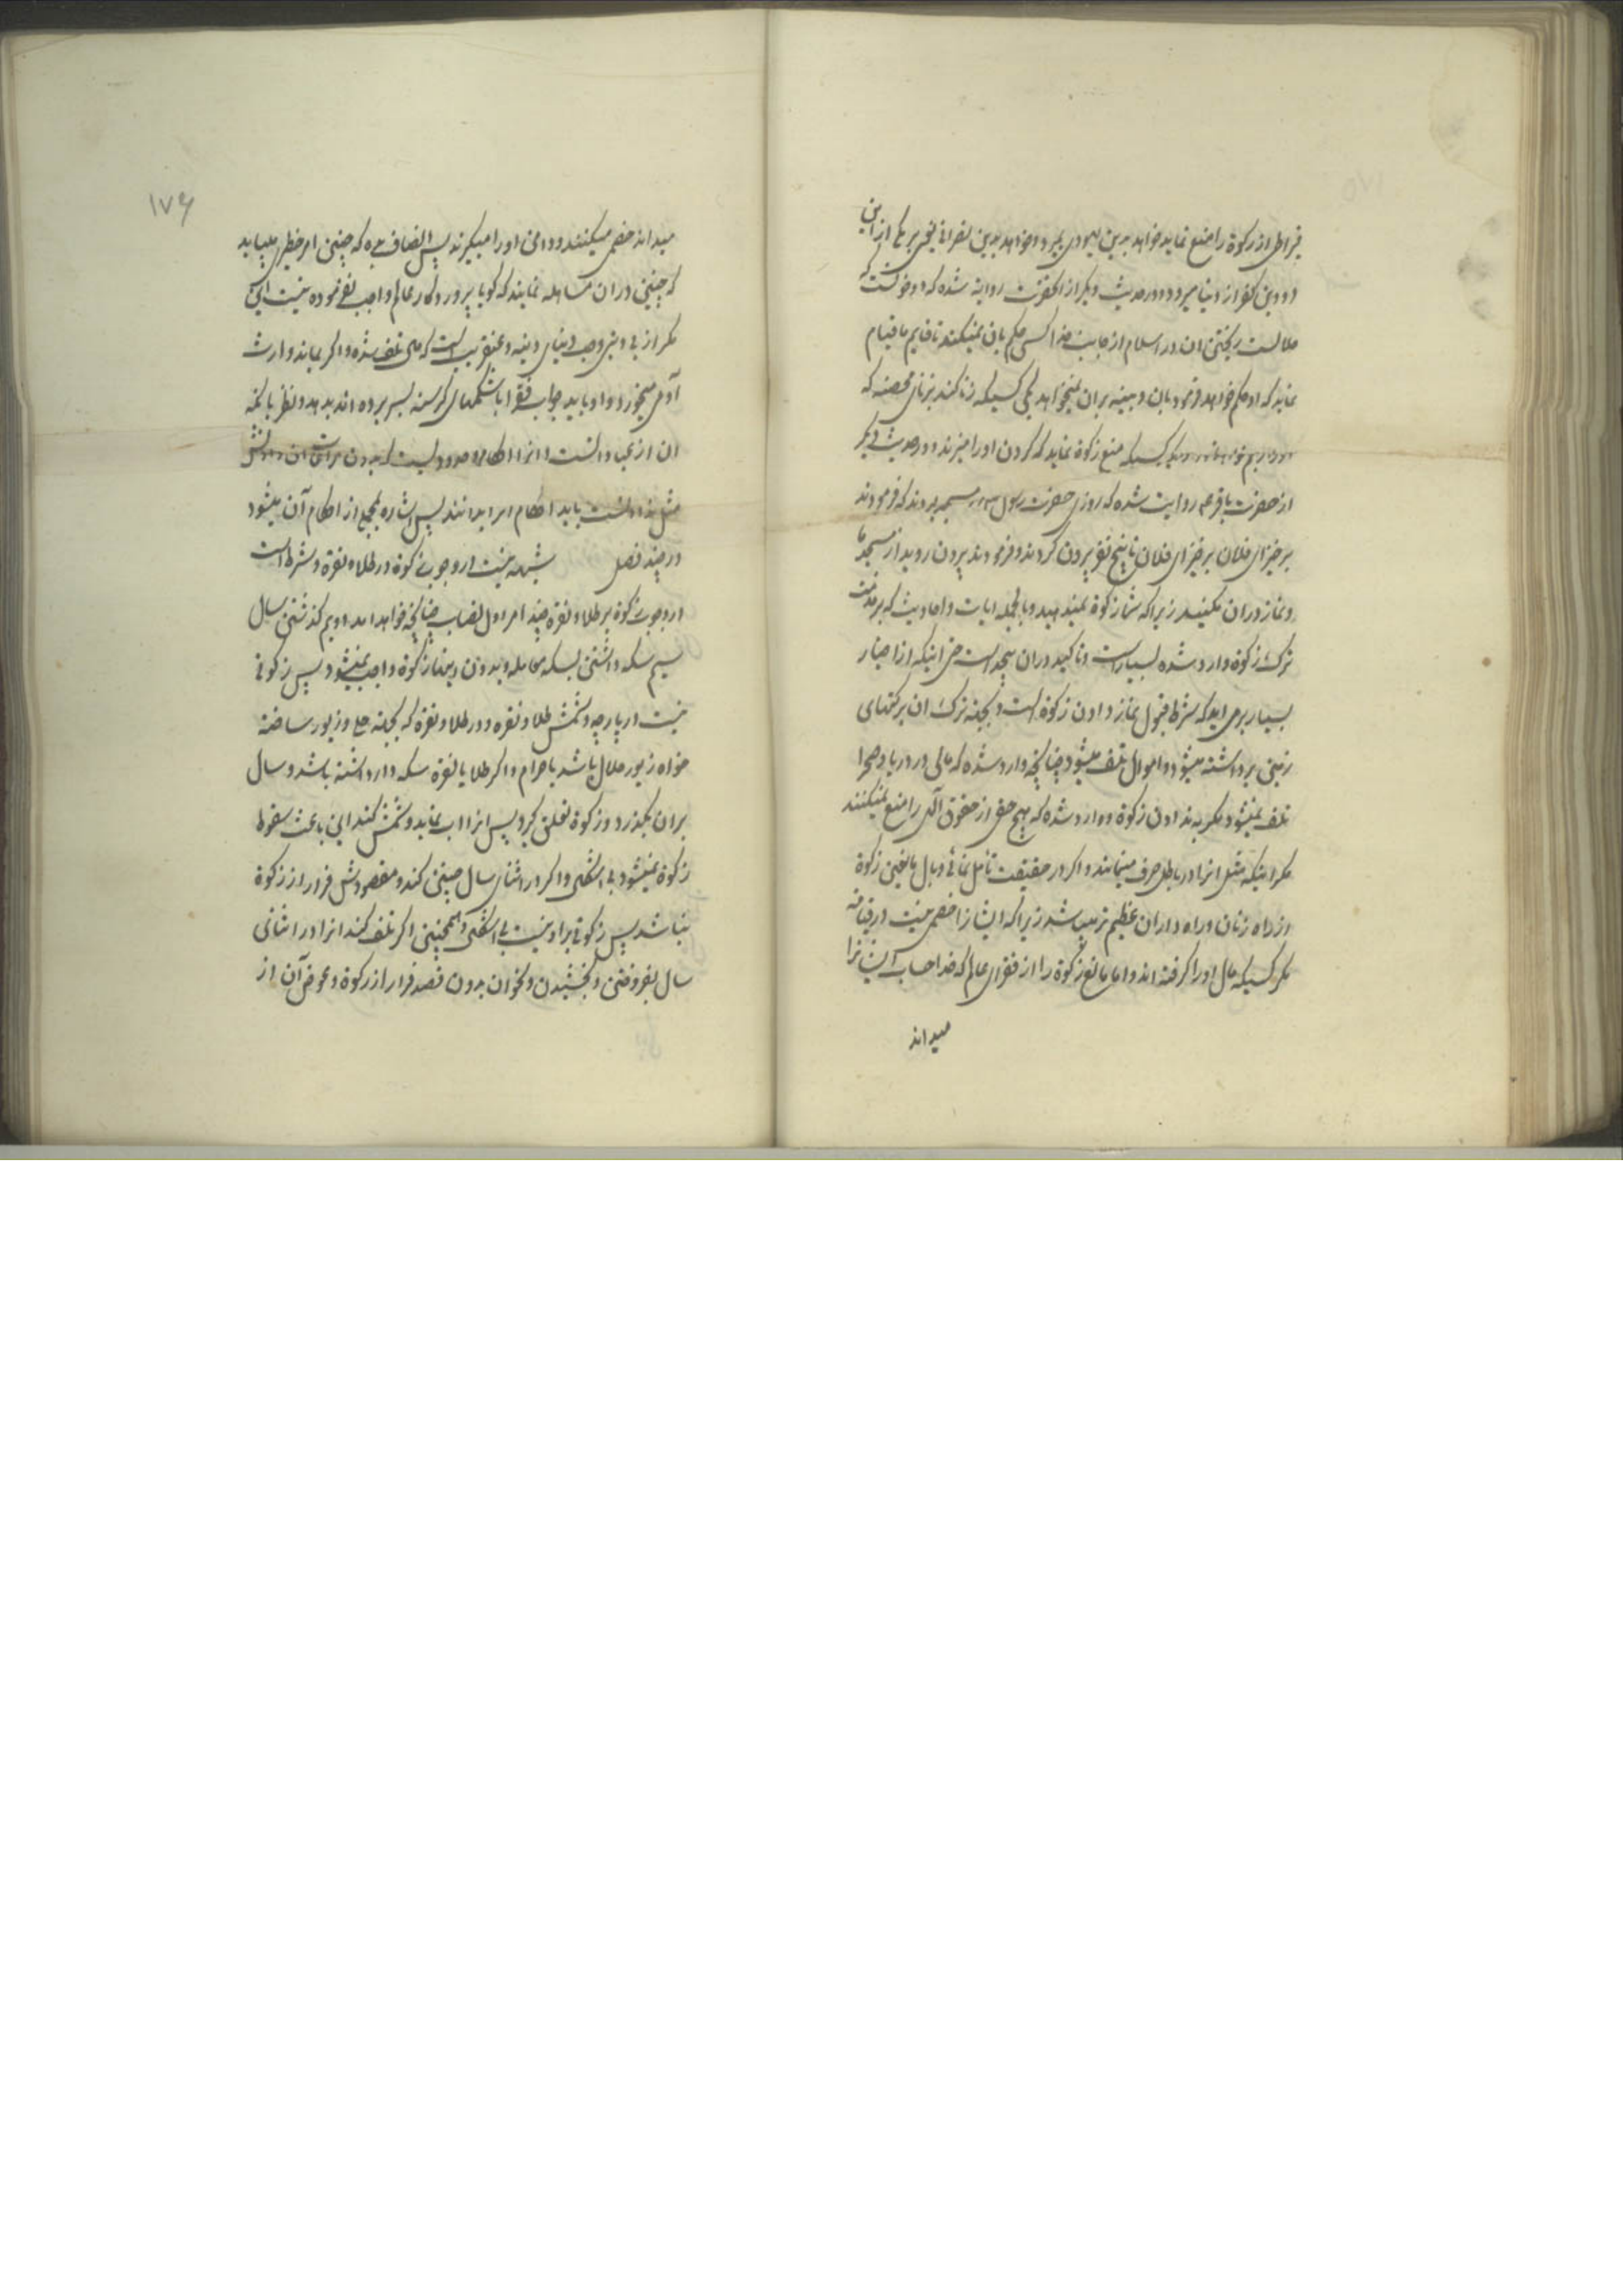 قیراطی از زکوة را منع نماید خواهد بدین یهودی بمیرد و خواهد بدین نصرانی یعنی بر یکی از این
دو دین کفر از دنیا میرود و در حدیث دیگر از انحضرت روایة شده که دو خونست که
حلالست ریختن ان در اسلام از جانب خدا کسی حکم بان نمیکند تا قایم ما قیام
نماید که او حکم خواهد فرمود بان و بینه بران نمیخواهد یکی کسیکه زنا کند بزنای محصنه که
او را رجم خواهد نمود و دیگر کسیکه منع زکوة نماید که گردن او را میزند و در حدیث دیگر
از حضرت باقر ع روایت شده که روزی حضرت رسول در مسجد بودند که فرمودند
برخیز ای فلان برخیز ای فلان تا پنج نفر بیرون کردند و فرمودند بیرون روید از مسجد ما
و نماز دران مکنید زیرا که شما زکوة نمیدهید و بالجمله ایات و احادیث که بر مذمت
ترک زکوة وارد شده بسیار است و تاکید دران بیحد است حتی اینکه از اخبار
بسیار برمی اید که شرط قبول نماز دادن زکوة است و بجهة ترک ان برکتهای
زمین برداشته میشود و اموال تلف میشود چنانچه وارد شده که مالی در دریا و صحرا
تلف نمیشود مگر به ندادن زکوة و وارد شده که هیچ حق از حقوق الهی را منع نمیکنند
مگر اینکه مثل انرا در باطل صرف مینمایند و اگر در حقیقت تأمل نمائی وبال مانعین زکوة
از راه زنان و راه داران عظیم تر میباشد زیرا که ایشانرا خصمی نیست در قیامة
مگر کسیکه مال او را گرفته اند و اما مانع زکوة را از فقرای عالم که خدا حساب ایشانرا
میداند
۱۷۶
میداند خصمی میکنند و دامن او را میگیرند پس انصاف بده که چنین امر خطیری میباید
که چنین دران مساهله نمایند که گویا پروردگار عالم واجب نفرموده نیست این
مگر از بی دینی وحب دنیای دنیه و عنقریب است که مال تلف شده و اگر بماند وارث
آدمی میخورد و او باید جواب فقرا با شکمهای گرسنه بسر برده اند بدهد و نظر بانکه
ان از عبادانست و انرا احکام و حدودیست که بدون مراعات ان دادنش
مثل ندادنست باید احکام انرا بدانند پس اشاره بمجمع از احکام آن میشود
در چند فصل شبهه نیست در وجوب زکوة در طلا و نقرة و شرط است
در وجوب زکوة بر طلا و نقرة چند امر اول نصاب چنانچه خواهد امد دویم گذشتن سال
سیم سکه داشتن بسکه معامله و بدون اینها زکوة واجب نمیشود پس زکوتی
نیست در پارچه و شمش طلا و نقره و در طلا و نقرة که بجهة حلی و زیور ساخته
خواه زیور حلال باشد یا حرام و اگر طلا یا نقرة سکه دار داشته باشد و سال
بران بگذرد و زکوة تعلق گیرد پس انرا اب نماید و شمش کند این باعث سقوط
زکوة نمیشود بی اشکال و اگر در اثنای سال چنین کند و مقصودش فرار از زکوة
نباشد پس زکوتی بر او نیست بی اشکال و همچنین اگر تلف کند انرا در اثنای
سال بفروختن و بخشیدن و نحو ان بدون قصد فرار از زکوة و عوض آن از